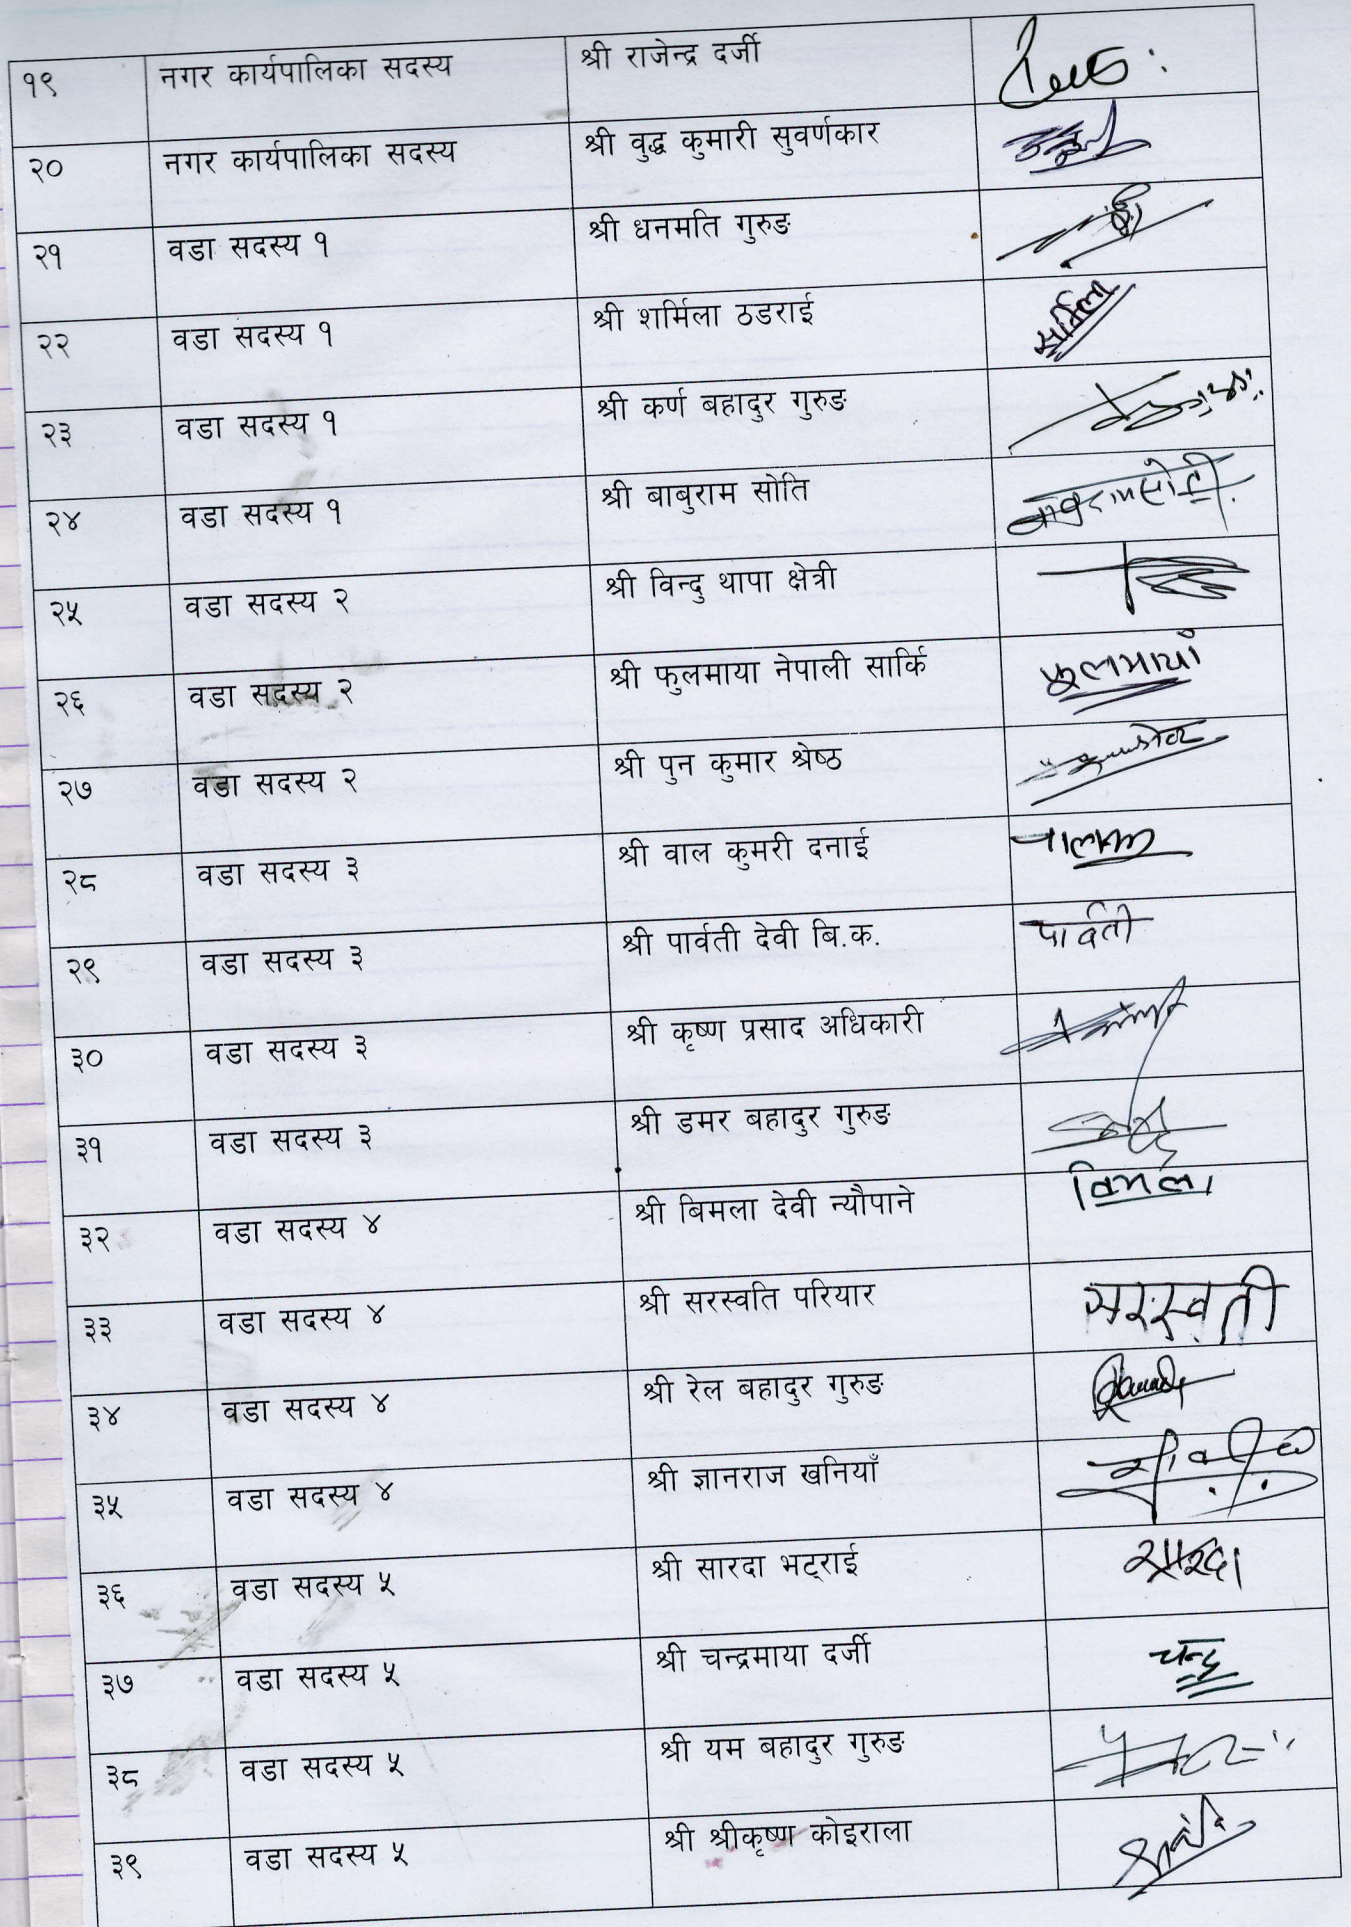 १९ नगर कार्यपालिका सदस्य श्री राजेन्द्र दर्जी
२० नगर कार्यपालिका सदस्य श्री वुद्ध कुमारी सुवर्णकार
२१ वडा सदस्य १ श्री धनमति गुरुङ
२२ वडा सदस्य १ श्री शर्मिला ठडराई सर्मिला
२३ वडा सदस्य १ श्री कर्ण बहादुर गुरुङ
२४ वडा सदस्य १ श्री बाबुराम सोति
२५ वडा सदस्य २ श्री विन्दु थापा क्षेत्री
२६ वडा सदस्य २ श्री फुलमाया नेपाली सार्कि फूलमाया
२७ वडा सदस्य २ श्री पुन कुमार श्रेष्ठ
२८ वडा सदस्य ३ श्री वाल कुमरी दनाई
२९ वडा सदस्य ३ श्री पार्वती देवी बि.क. पार्वती
३० वडा सदस्य ३ श्री कृष्ण प्रसाद अधिकारी
३१ वडा सदस्य ३ श्री डमर बहादुर गुरुङ
३२ वडा सदस्य ४ श्री बिमला देवी न्यौपाने विमला
३३ वडा सदस्य ४ श्री सरस्वति परियार सरस्वती
३४ वडा सदस्य ४ श्री रेल बहादुर गुरुङ
३५ वडा सदस्य ४ श्री ज्ञानराज खनियाँ
३६ वडा सदस्य ५ श्री सारदा भट्राई सारदा
३७ वडा सदस्य ५ श्री चन्द्रमाया दर्जी चन्द्र
३८ वडा सदस्य ५ श्री यम बहादुर गुरुङ
३९ वडा सदस्य ५ श्री श्रीकृष्ण कोइराला